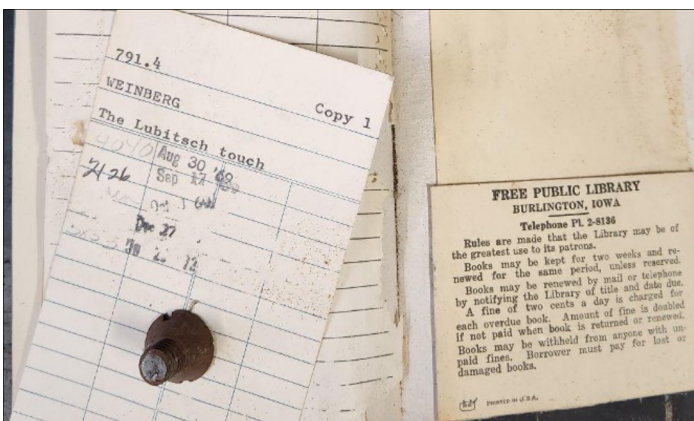 791.4
WEINBERG
Copy 1
The Lubitsch touch
Aug 30 '68
Sep
2126
Dec 27
FREE PUBLIC LIBRARY
BURLINGTON, IOWA
Telephone Pl. 2-8136
Rules are made that the Library may be of
the greatest use to its patrons.
Books may be kept for two weeks and re-
newed for the same period, unless reserved.
Books may be renewed by mail or telephone
by notifying the Library of title and date due.
A fine of two cents a day is charged for
each overdue book. Amount of fine is doubled
if not paid when book is returned or renewed.
Books may be withheld from anyone with un-
paid fines. Borrower must pay for lost or
damaged books.
PRINTED IN U.S.A.